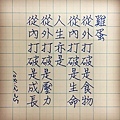 雞蛋
從外打破是食物
從內打破是生命
人生亦是
從外打破是壓力
從內打破是成長